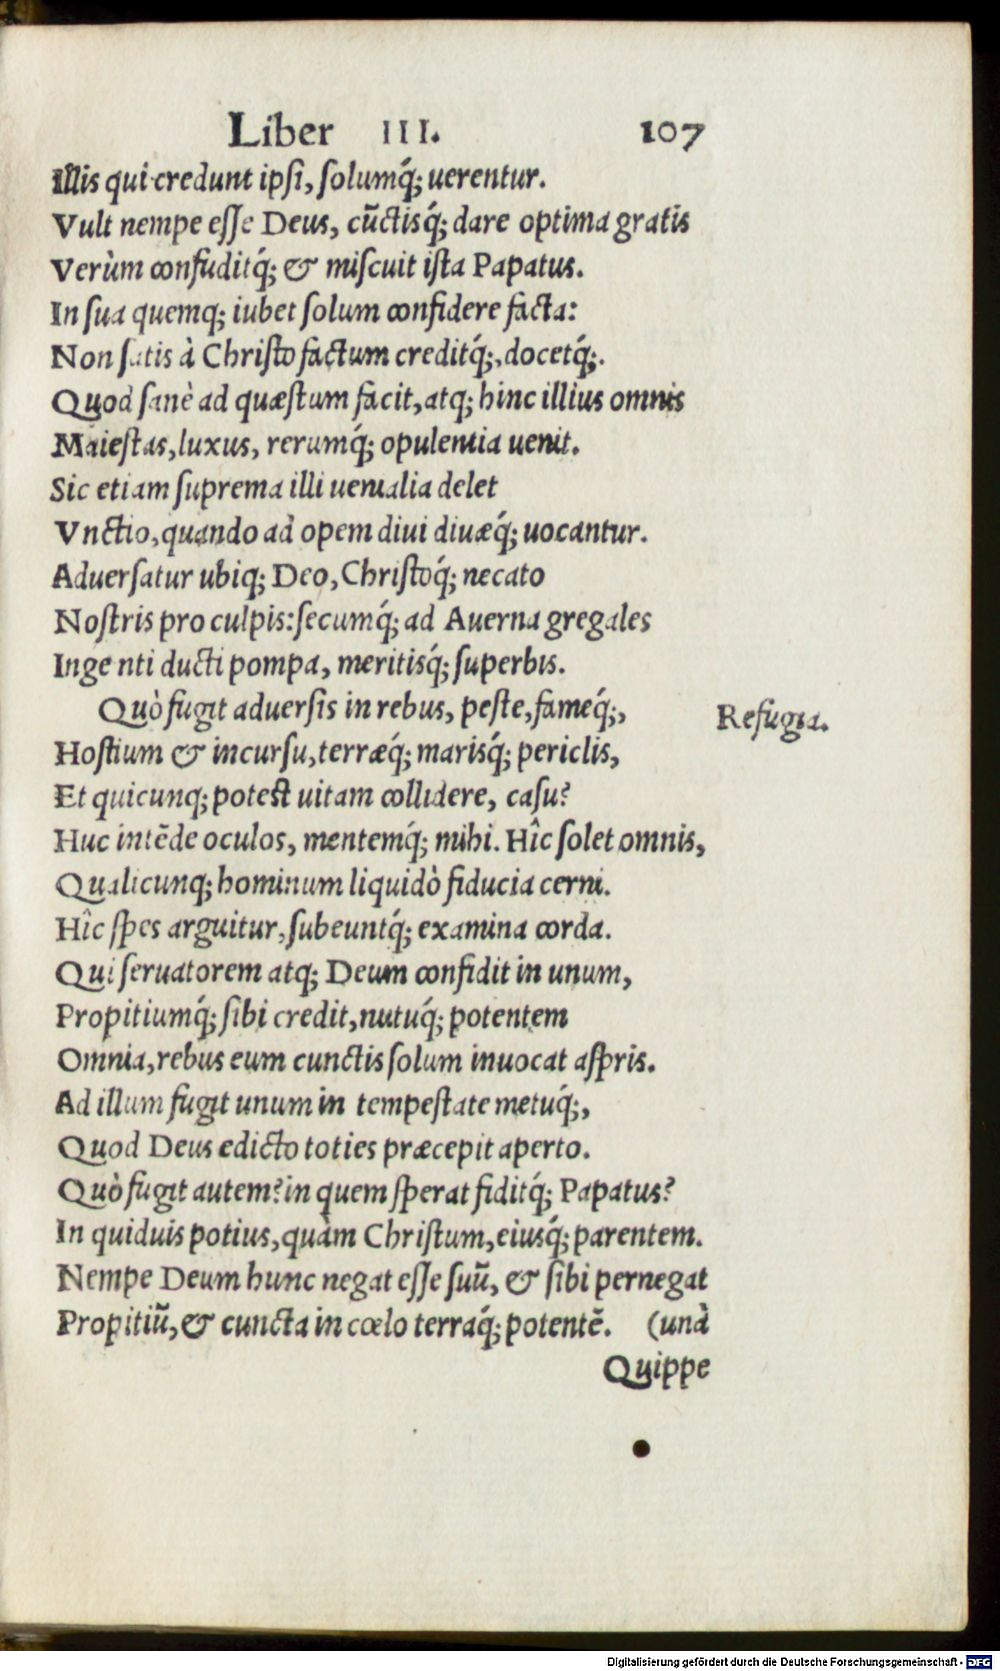 Liber III. 107
Illis qui credunt ipsi, ſolumq́; uerentur.
Vult nempe eſſe Deus, cūctisq́; dare optima gratis
Verùm confuditq́; & miſcuit iſta Papatus.
In ſua quemq; iubet ſolum confidere facta:
Non ſatis à Chriſto factum creditq́;, docetq́;.
Quod ſanè ad quæſtum facit, atq; hinc illius omnis
Maieſtas, luxus, rerumq́; opulentia uenit.
Sic etiam ſuprema illi uenialia delet
Vnctio, quando ad opem diui diuæq́; uocantur.
Aduerſatur ubiq; Deo, Chriſtoq́; necato
Noſtris pro culpis: ſecumq́; ad Auerna gregales
Ingenti ducti pompa, meritisq́; ſuperbis.
Quò fugit aduerſis in rebus, peſte, fameq́;,
Refugia.
Hoſtium & incurſu, terræq́; marisq́; periclis,
Et quicunq; poteſt uitam collidere, caſu?
Huc intēde oculos, mentemq́; mihi. Hîc ſolet omnis,
Qualicunq; hominum liquidò fiducia cerni.
Hîc ſpes arguitur, ſubeuntq́; examina corda.
Qui ſeruatorem atq; Deum confidit in unum,
Propitiumq́; ſibi credit, nutuq́; potentem
Omnia, rebus eum cunctis ſolum inuocat aſpris.
Ad illum fugit unum in tempeſtate metuq́;,
Quod Deus edicto toties præcepit aperto.
Quò fugit autem? in quem ſperat fiditq́; Papatus?
In quiduis potius, quàm Chriſtum, eiusq́; parentem.
Nempe Deum hunc negat eſſe ſuū, & ſibi pernegat
Propitiū, & cuncta in cœlo terraq́; potentē. (unà
Quippe
Digitalisierung gefördert durch die Deutsche Forschungsgemeinschaft - DFG